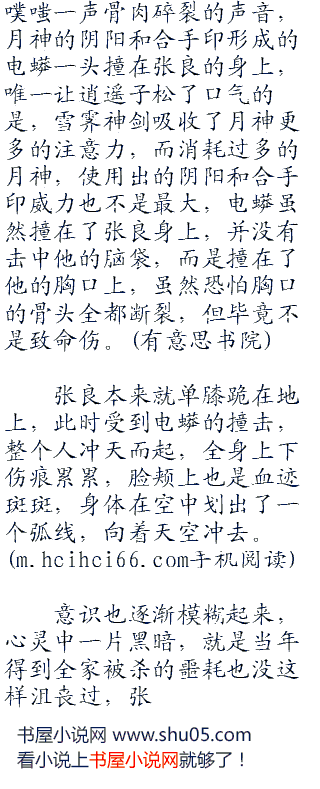 噗嗤一声骨肉碎裂的声音，
月神的阴阳和合手印形成的
电蟒一头撞在张良的身上，
唯一让逍遥子松了口气的
是，雪霁神剑吸收了月神更
多的注意力，而消耗过多的
月神，使用出的阴阳和合手
印威力也不是最大，电蟒虽
然撞在了张良身上，并没有
击中他的脑袋，而是撞在了
他的胸口上，虽然恐怕胸口
的骨头全都断裂，但毕竟不
是致命伤。(有意思书院)
张良本来就单膝跪在地
上，此时受到电蟒的撞击，
整个人冲天而起，全身上下
伤痕累累，脸颊上也是血迹
斑斑，身体在空中划出了一
个弧线，向着天空冲去。
(m.hcihci66.com手机阅读)
意识也逐渐模糊起来，
心灵中一片黑暗，就是当年
得到全家被杀的噩耗也没这
样沮丧过，张
书屋小说网 www.shu05.com
看小说上书屋小说网就够了！